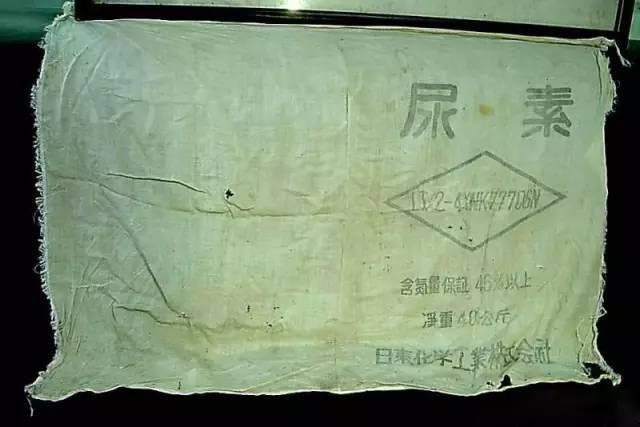 尿素
含氮量保証 46%以上
淨重40公斤
日東化学工業株式会社